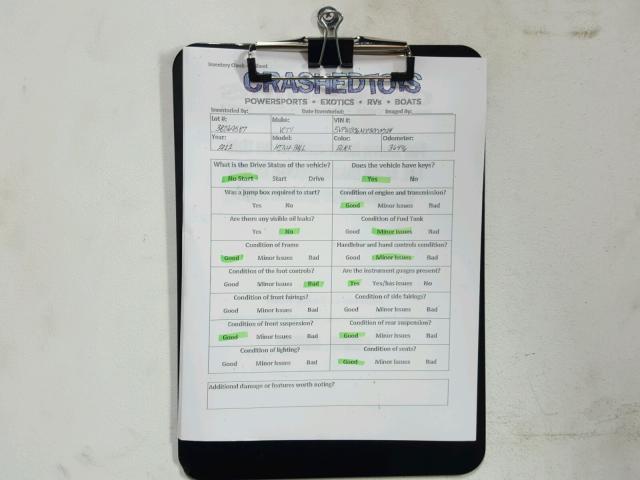 Inventory Check Sheet
CRASHEDTOYS
POWERSPORTS • EXOTICS • RVs • BOATS
Inventoried By: Date Inventoried: Imaged By:
Lot #: Make: VIN #:
Year: Model: Color: Odometer:
What is the Drive Status of the vehicle? Does the vehicle have keys?
No Start Start Drive Yes No
Was a jump box required to start? Condition of engine and transmission?
Yes No Good Minor Issues Bad
Are there any visible oil leaks? Condition of Fuel Tank
Yes No Good Minor Issues Bad
Condition of Frame Handlebar and hand controls condition?
Good Minor Issues Bad Good Minor Issues Bad
Condition of the foot controls? Are the instrument gauges present?
Good Minor Issues Bad Yes Yes/has issues No
Condition of front fairings? Condition of side fairings?
Good Minor Issues Bad Good Minor Issues Bad
Condition of front suspension? Condition of rear suspension?
Good Minor Issues Bad Good Minor Issues Bad
Condition of lighting? Condition of seats?
Good Minor Issues Bad Good Minor Issues Bad
Additional damage or features worth noting?